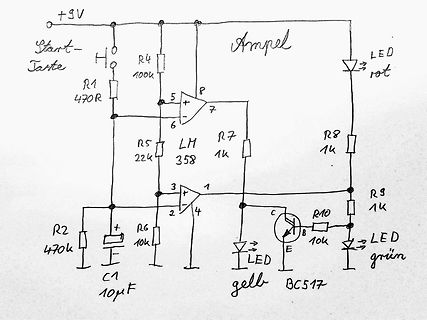 +9V
Ampel
Start-
Taste
R1
470R
R4
100k
8
5
7
6
LM
358
R5
22k
R7
1k
LED
rot
R8
1k
3
1
2
4
R9
1k
R2
470k
C1
10µF
+
R6
10k
C
B
E
R10
10k
LED
gelb
BC517
LED
grün